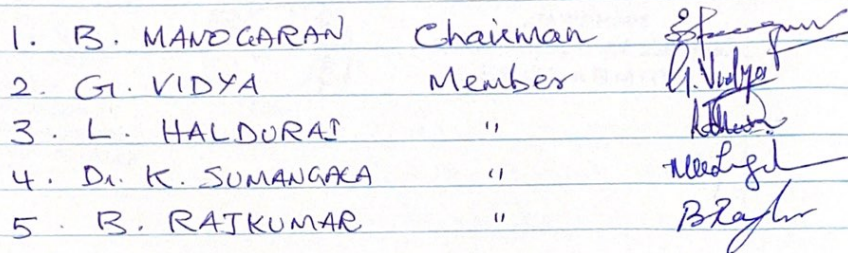 1. B. MANOGARAN Chairman
2. G. VIDYA Member G. Vidya
3. L. HALDURAI "
4. Dr. K. SUMANGALA "
5. B. RAJKUMAR "